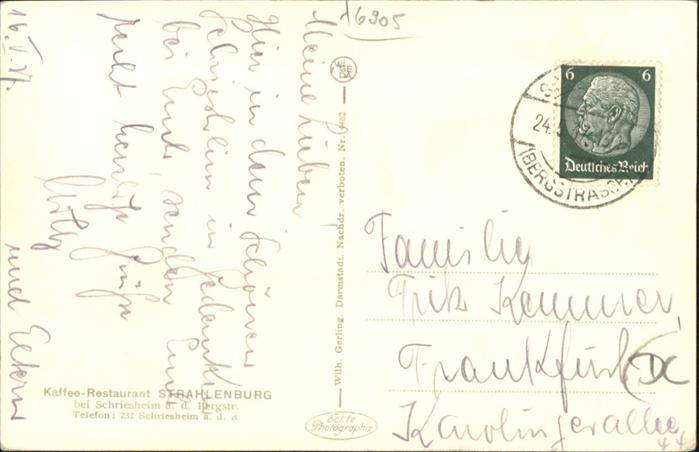 16905
16.V.37.
Meine Lieben
Hier in dem schönen
Schriesheim in Gedanken
bei Euch, senden Euch
recht herzliche Grüße
Willy
und Eltern
WE
GE
DA
Wilh. Gerling, Darmstadt. Nachdr. verboten. Nr.
Kaffee-Restaurant STRAHLENBURG
bei Schriesheim a. d. Bergstr.
Telefon: 232 Schriesheim a. d. B
Echte
Photographie
6 6
Deutsches Reich
24.
(BERGSTRASSE)
Familie
Fritz Kemmer,
Frankfurt
Karolingerallee
44